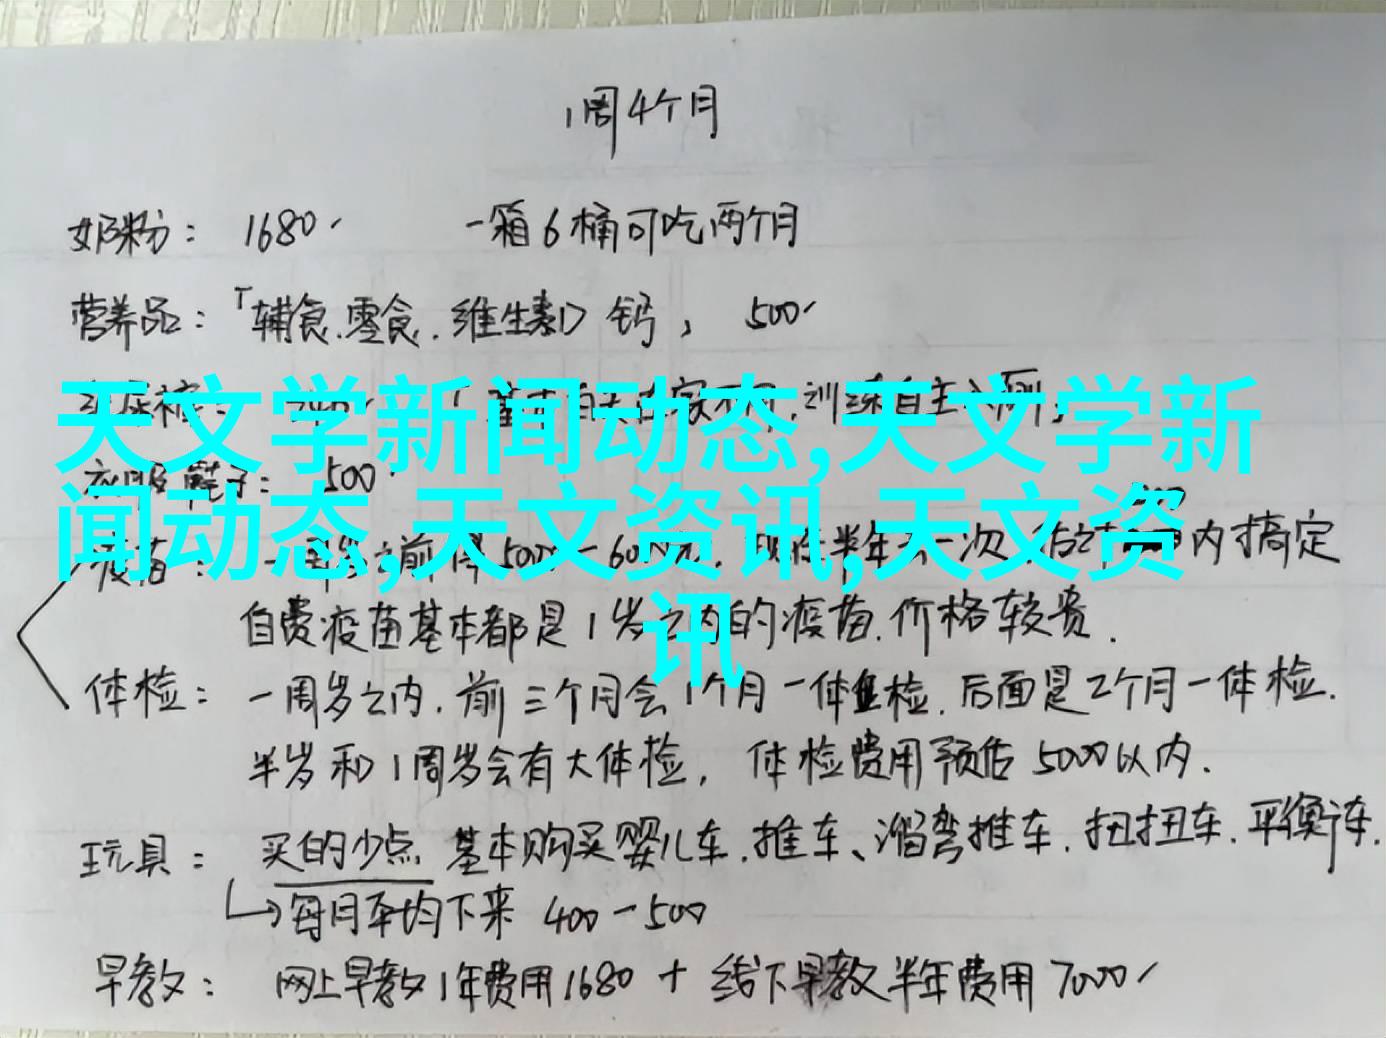 1周4个月
奶粉： 1680 一箱6桶可吃两个月
营养品：「辅食.零食.维生素D 钙， 500
天文学新闻动态,天文学新
500
闻动态,天文资讯,天文资
讯
疫苗： 内搞定
自费疫苗基本都是1岁之内的疫苗.价格较贵.
体检： 一周岁之内.前三个月会1个月一体检.后面是2个月一体检.
半岁和1周岁会有大体检， 体检费用预估5000以内.
玩具： 买的少点 基本购买婴儿车.推车、溜弯推车.扭扭车.平衡车.
每月平均下来 400-500
早教： 网上早教1年费用1680 + 线下早教半年费用7000